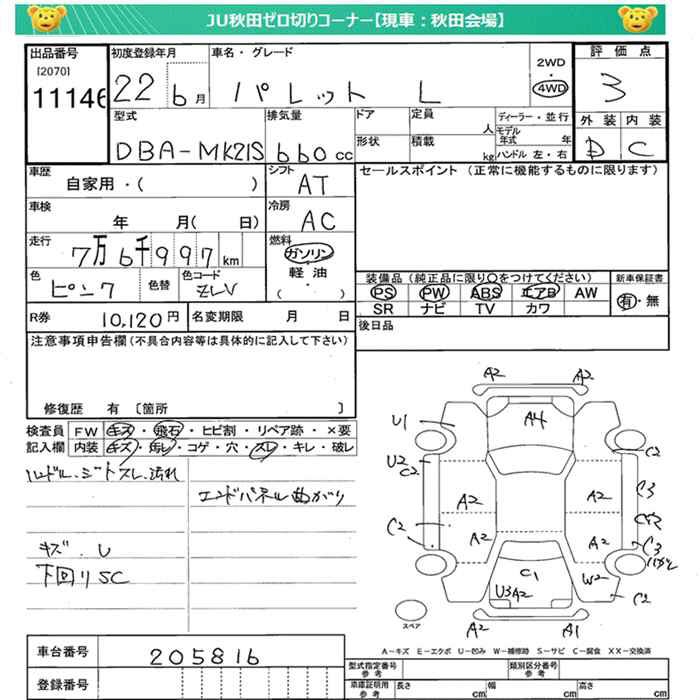 JU秋田ゼロ切りコーナー【現車：秋田会場】
出品番号
[2070]
11146
初度登録年月
22 6月
車名・グレード
パレット L
2WD
・
4WD
評価点
3
型式
DBA-MK21S
排気量
660cc
ドア
定員
人
ディーラー・並行
モデル年式 年
形状
積載
kg
ハンドル 左・右
外装 内装
D C
車歴
自家用・( )
シフト
AT
セールスポイント（正常に機能するものに限ります）
車検
年 月( 日)
冷房
AC
走行
7万6千997km
燃料
ガソリン
軽油
( ・ )
色
ピンク
色替
色コード
ZLV
装備品（純正品に限り○をつけてください）
PS PW ABS エアB AW
SR ナビ TV カワ
新車保証書
有・無
R券 10,120円
名変期限 月 日
後日品
注意事項申告欄（不具合内容等は具体的に記入して下さい）
修復歴 有 〔箇所 〕
検査員記入欄
FW キズ・飛石・ヒビ割・リペア跡・×要
内装 キズ・汚レ・コゲ・穴・スレ・キレ・破レ
ハンドル、シートスレ、汚れ
エンドパネル曲がり
キズ、U
下回りSC
A2 A2
U1 A4
U2 C2 C2
A2 A2 C3
C2 A2 A2 C3
C1 W2
U3 A2 C2
スペア
A2 A1
A－キズ E－エクボ U－凹み W－補修跡 S－サビ C－腐食 XX－交換済
車台番号 205816
登録番号
型式指定番号参考
類別区分番号参考
車庫証明用参考 長さ cm 幅 cm 高さ cm